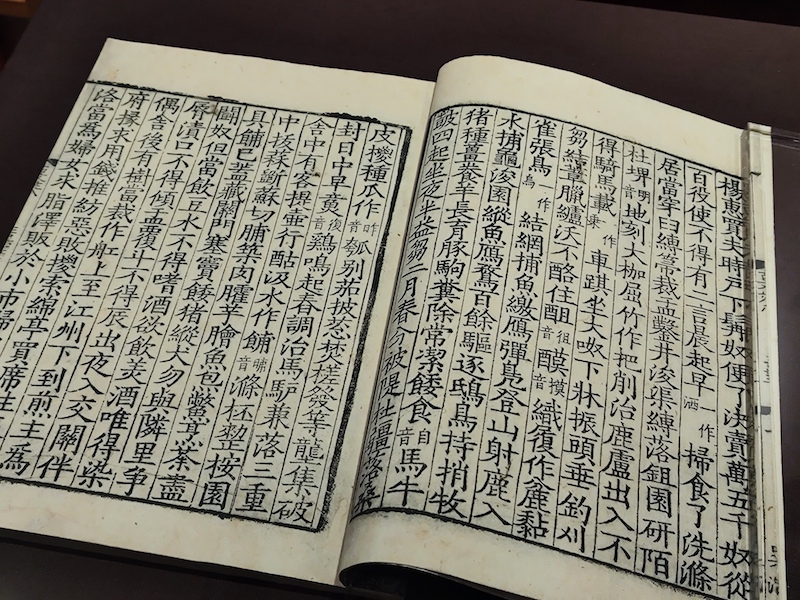 楊惠買夫時戶下髯奴便了決賣萬五千奴從
百役使不得有二言晨起早一作洒掃食了洗滌
居當穿臼縛箒裁盂鑿井浚渠縛落鉏園研陌
杜埤音地刻大枷屈竹作杷削治鹿盧出入不
得騎馬載一作乘車踑坐大呶下牀振頭垂釣刈
芻結葦臘纑沃不酪住䣯音徂䤃音摸織履作麄黏
雀張鳥一作烏結網捕魚繳鴈彈鳧登山射鹿入
水捕龜浚園縱魚鴈鶩百餘驅逐鴟鳥持捎牧
猪種薑養芋長育豚駒糞除常潔餧食音自馬牛
鼓四起坐夜半益芻二月春分被隄杜疆落桑
皮椶種瓜作音昨瓠別茄披葱焚槎發等壟集破
封日中早音後雞鳴起舂調治馬驢兼落三重
舍中有客提壺行酤汲水作餔音晡滌柸整桉園
中拔蒜斷蘇切脯築肉臛芋膾魚炰鱉烹茶盡
具餔已蓋藏關門塞竇餧猪縱犬勿與隣里爭
鬬奴但當飲豆水不得嗜酒欲飲美酒唯得染
脣漬口不得傾盂覆斗不得辰出夜入交關伴
偶舍後有樹當裁作舡上至江州下到煎主爲
府掾求用錢推紡惡敗椶索綿亭買席往
洛當爲婦女求脂澤販於小市歸